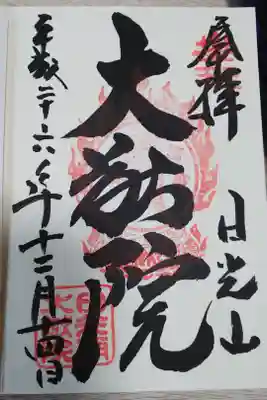 奉拝
日光山
大猷院
平成二十六年十二月十四日